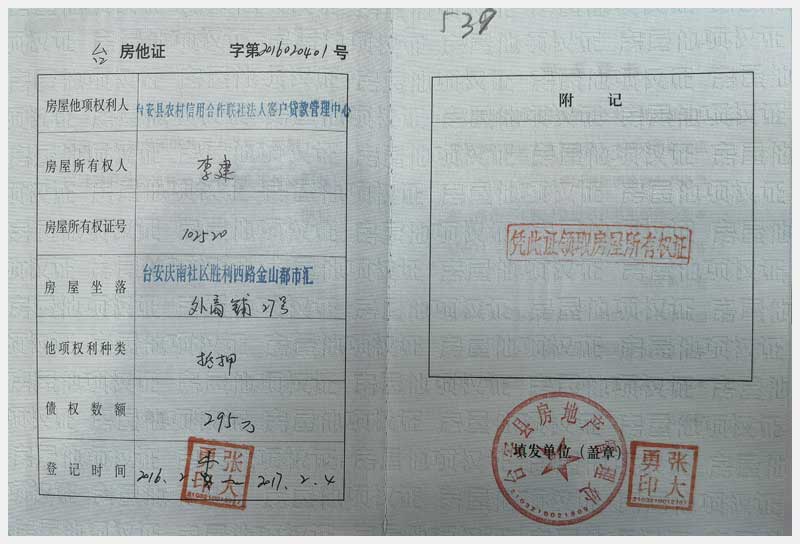 539
台 房他证 字第2016020401号
房屋他项权利人 台安县农村信用合作联社法人客户贷款管理中心
房屋所有权人 李建
房屋所有权证号 102520
房屋坐落 台安庆南社区胜利西路金山都市汇
外商铺27号
他项权利种类 抵押
债权数额 295万
登记时间 2016.2. 2017.2.4
张大勇印
附记
凭此证领取房屋所有权证
台安县房地产管理处
填发单位(盖章)
张大勇印